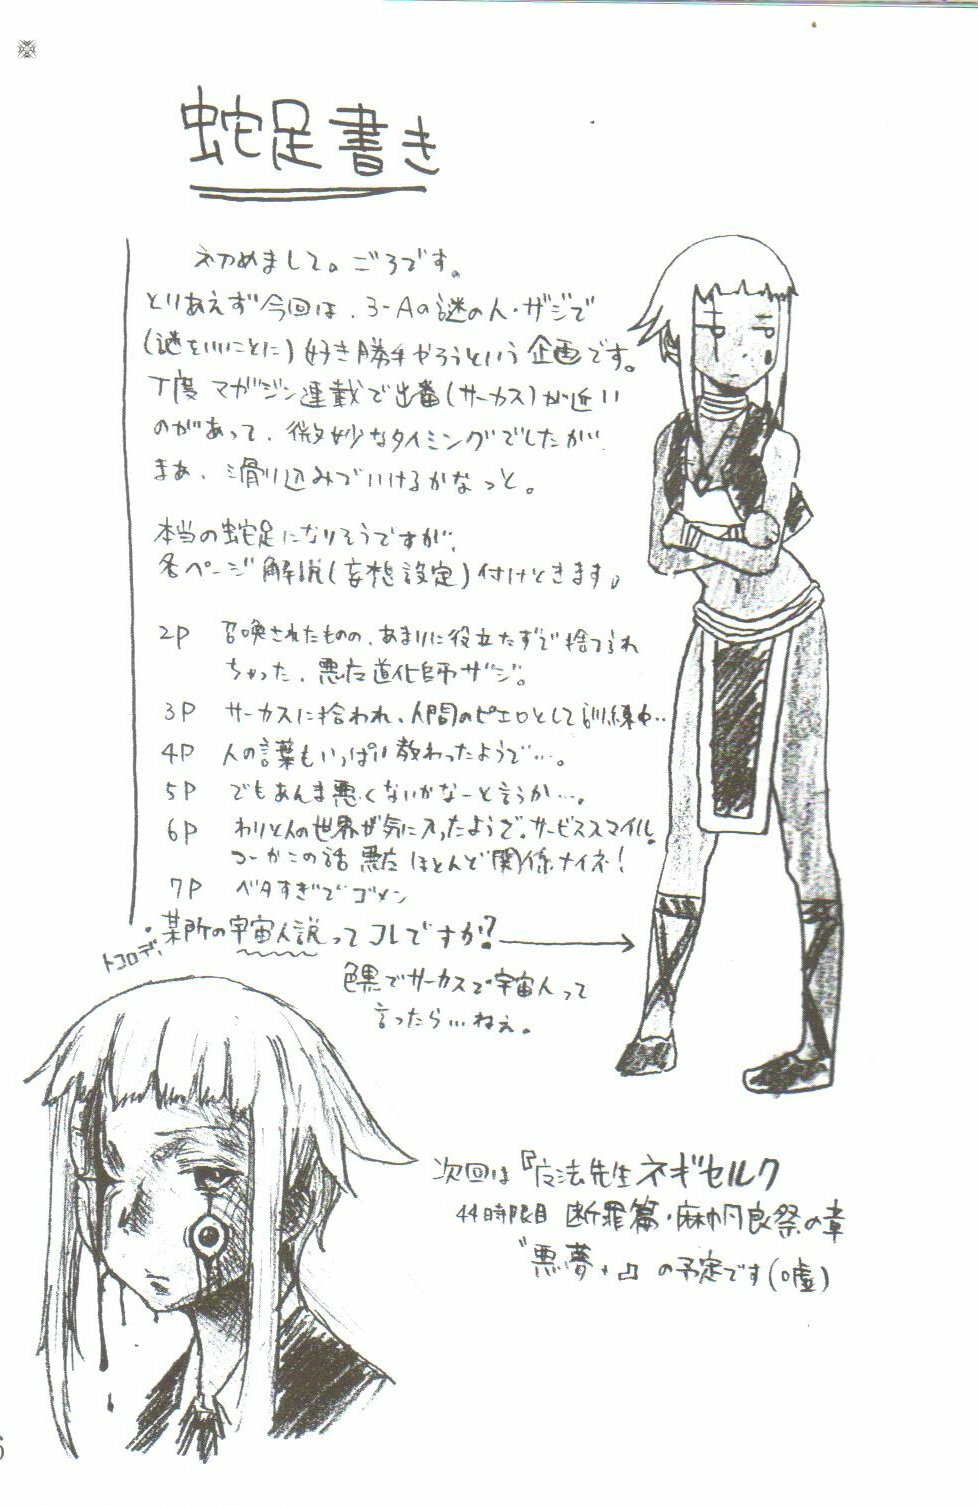 蛇足書き
初めまして。ごろです。
とりあえず今回は、3-Aの謎の人・ザジで
(謎をいいことに)好き勝手やろうという企画です。
丁度マガジン連載で出番(サーカス)が近い
のがあって、微妙なタイミングでしたが、
まあ、滑り込みでいけるかなっと。
本当の蛇足になりそうですが、
各ページ解説(妄想設定)付けときます。
2P 召喚されたものの、あまりに役立たずで捨てられ
ちゃった、悪魔道化師ザジ。
3P サーカスに拾われ、人間のピエロとして訓練中…
4P 人の言葉もいっぱい教わったようで…。
5P でもあんま悪くないかなーと言うか…。
6P わりと人の世界が気に入ったようで、サービススマイル。
つーかこの話 悪魔ほとんど関係ナイネ!
7P ベタすぎでゴメン
トコロデ、
・某所の宇宙人説ってコレですか?
色黒でサーカスで宇宙人って
言ったら…ねぇ。
次回は『魔法先生ネギセルク
44時限目 断罪篇・麻帆良祭の章
"悪夢"』の予定です(嘘)
6